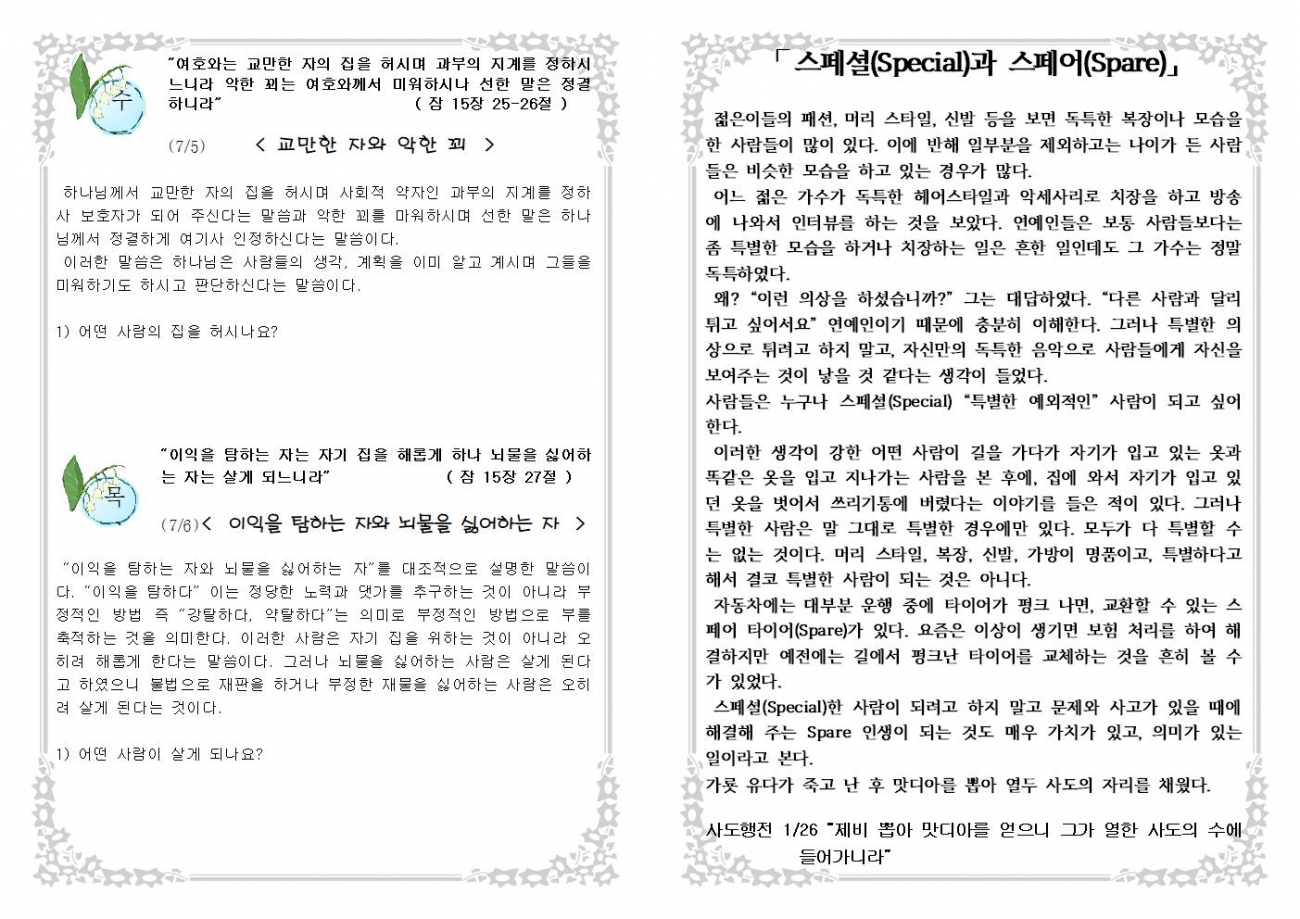 수
“여호와는 교만한 자의 집을 허시며 과부의 지계를 정하시
느니라 악한 꾀는 여호와께서 미워하시나 선한 말은 정결
하니라” ( 잠 15장 25-26절 )
(7/5) < 교만한 자와 악한 꾀 >
하나님께서 교만한 자의 집을 허시며 사회적 약자인 과부의 지계를 정하
사 보호자가 되어 주신다는 말씀과 악한 꾀를 미워하시며 선한 말은 하나
님께서 정결하게 여기사 인정하신다는 말씀이다.
이러한 말씀은 하나님은 사람들의 생각, 계획을 이미 알고 계시며 그들을
미워하기도 하시고 판단하신다는 말씀이다.
1) 어떤 사람의 집을 허시나요?
목
“이익을 탐하는 자는 자기 집을 해롭게 하나 뇌물을 싫어하
는 자는 살게 되느니라” ( 잠 15장 27절 )
(7/6)< 이익을 탐하는 자와 뇌물을 싫어하는 자 >
“이익을 탐하는 자와 뇌물을 싫어하는 자”를 대조적으로 설명한 말씀이
다. “이익을 탐하다” 이는 정당한 노력과 댓가를 추구하는 것이 아니라 부
정적인 방법 즉 “강탈하다, 약탈하다”는 의미로 부정적인 방법으로 부를
축적하는 것을 의미한다. 이러한 사람은 자기 집을 위하는 것이 아니라 오
히려 해롭게 한다는 말씀이다. 그러나 뇌물을 싫어하는 사람은 살게 된다
고 하였으니 불법으로 재판을 하거나 부정한 재물을 싫어하는 사람은 오히
려 살게 된다는 것이다.
1) 어떤 사람이 살게 되나요?
「 스페셜(Special)과 스페어(Spare)」
젊은이들의 패션, 머리 스타일, 신발 등을 보면 독특한 복장이나 모습을
한 사람들이 많이 있다. 이에 반해 일부분을 제외하고는 나이가 든 사람
들은 비슷한 모습을 하고 있는 경우가 많다.
어느 젊은 가수가 독특한 헤어스타일과 악세사리로 치장을 하고 방송
에 나와서 인터뷰를 하는 것을 보았다. 연예인들은 보통 사람들보다는
좀 특별한 모습을 하거나 치장하는 일은 흔한 일인데도 그 가수는 정말
독특하였다.
왜? “이런 의상을 하셨습니까?” 그는 대답하였다. “다른 사람과 달리
튀고 싶어서요” 연예인이기 때문에 충분히 이해한다. 그러나 특별한 의
상으로 튀려고 하지 말고, 자신만의 독특한 음악으로 사람들에게 자신을
보여주는 것이 낳을 것 같다는 생각이 들었다.
사람들은 누구나 스페셜(Special) “특별한 예외적인” 사람이 되고 싶어
한다.
이러한 생각이 강한 어떤 사람이 길을 가다가 자기가 입고 있는 옷과
똑같은 옷을 입고 지나가는 사람을 본 후에, 집에 와서 자기가 입고 있
던 옷을 벗어서 쓰리기통에 버렸다는 이야기를 들은 적이 있다. 그러나
특별한 사람은 말 그대로 특별한 경우에만 있다. 모두가 다 특별할 수
는 없는 것이다. 머리 스타일, 복장, 신발, 가방이 명품이고, 특별하다고
해서 결코 특별한 사람이 되는 것은 아니다.
자동차에는 대부분 운행 중에 타이어가 펑크 나면, 교환할 수 있는 스
페어 타이어(Spare)가 있다. 요즘은 이상이 생기면 보험 처리를 하여 해
결하지만 예전에는 길에서 펑크난 타이어를 교체하는 것을 흔히 볼 수
가 있었다.
스페셜(Special)한 사람이 되려고 하지 말고 문제와 사고가 있을 때에
해결해 주는 Spare 인생이 되는 것도 매우 가치가 있고, 의미가 있는
일이라고 본다.
가룟 유다가 죽고 난 후 맛디아를 뽑아 열두 사도의 자리를 채웠다.
사도행전 1/26 "제비 뽑아 맛디아를 얻으니 그가 열한 사도의 수에
들어가니라”